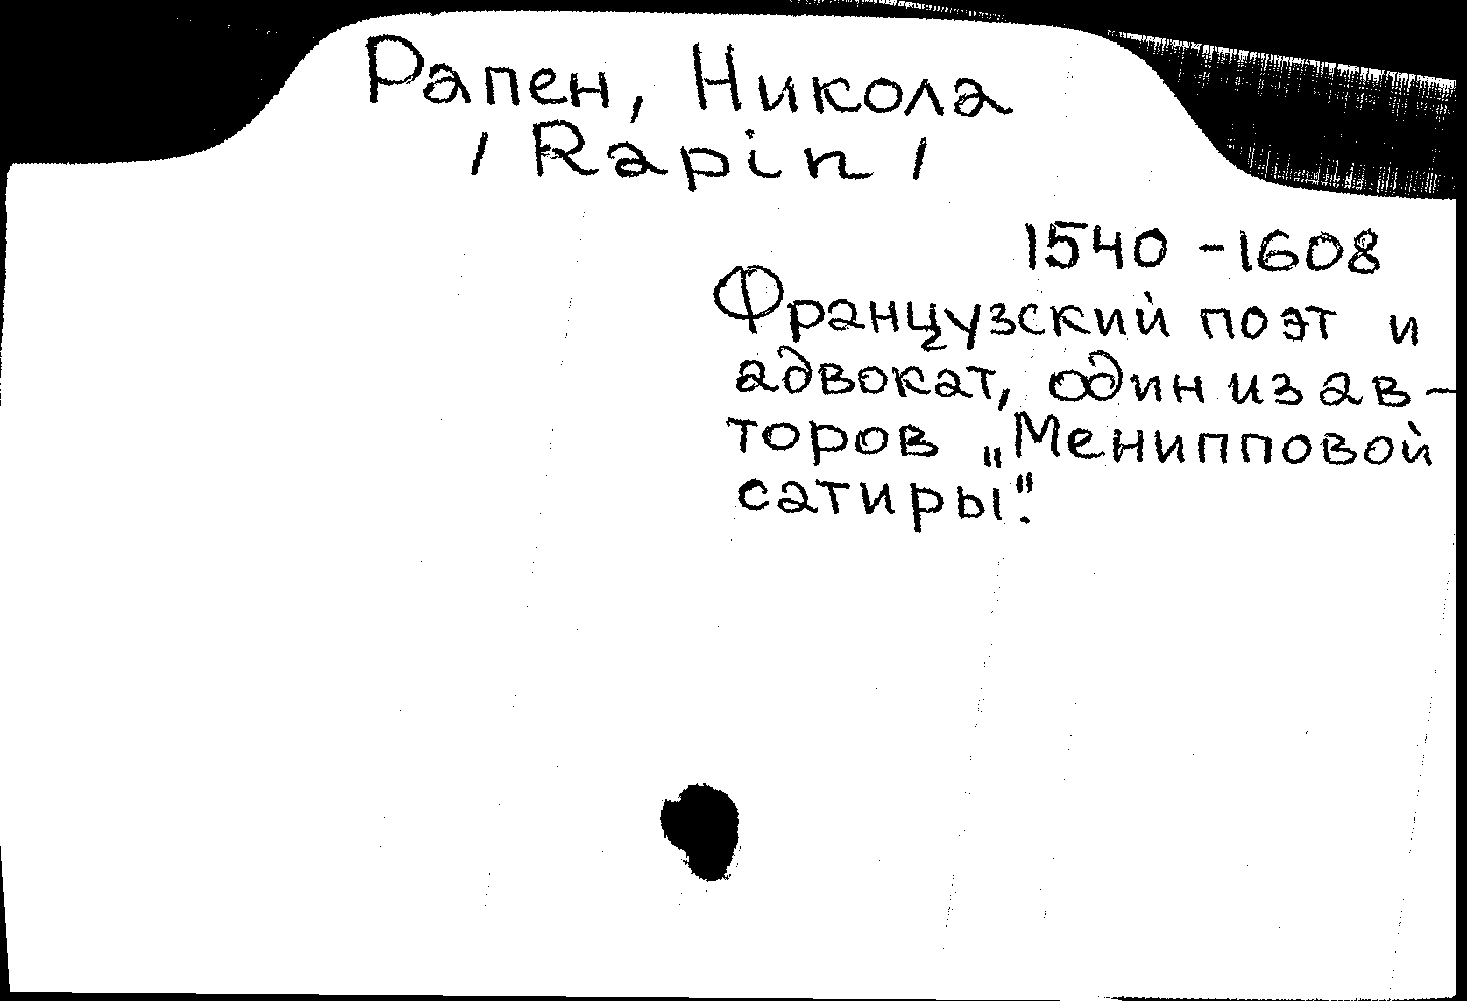 Рапен, Никола
/ Rapin /
1540 - 1608
Французский поэт и
адвокат, один из ав-
торов „Менипповой
сатиры".